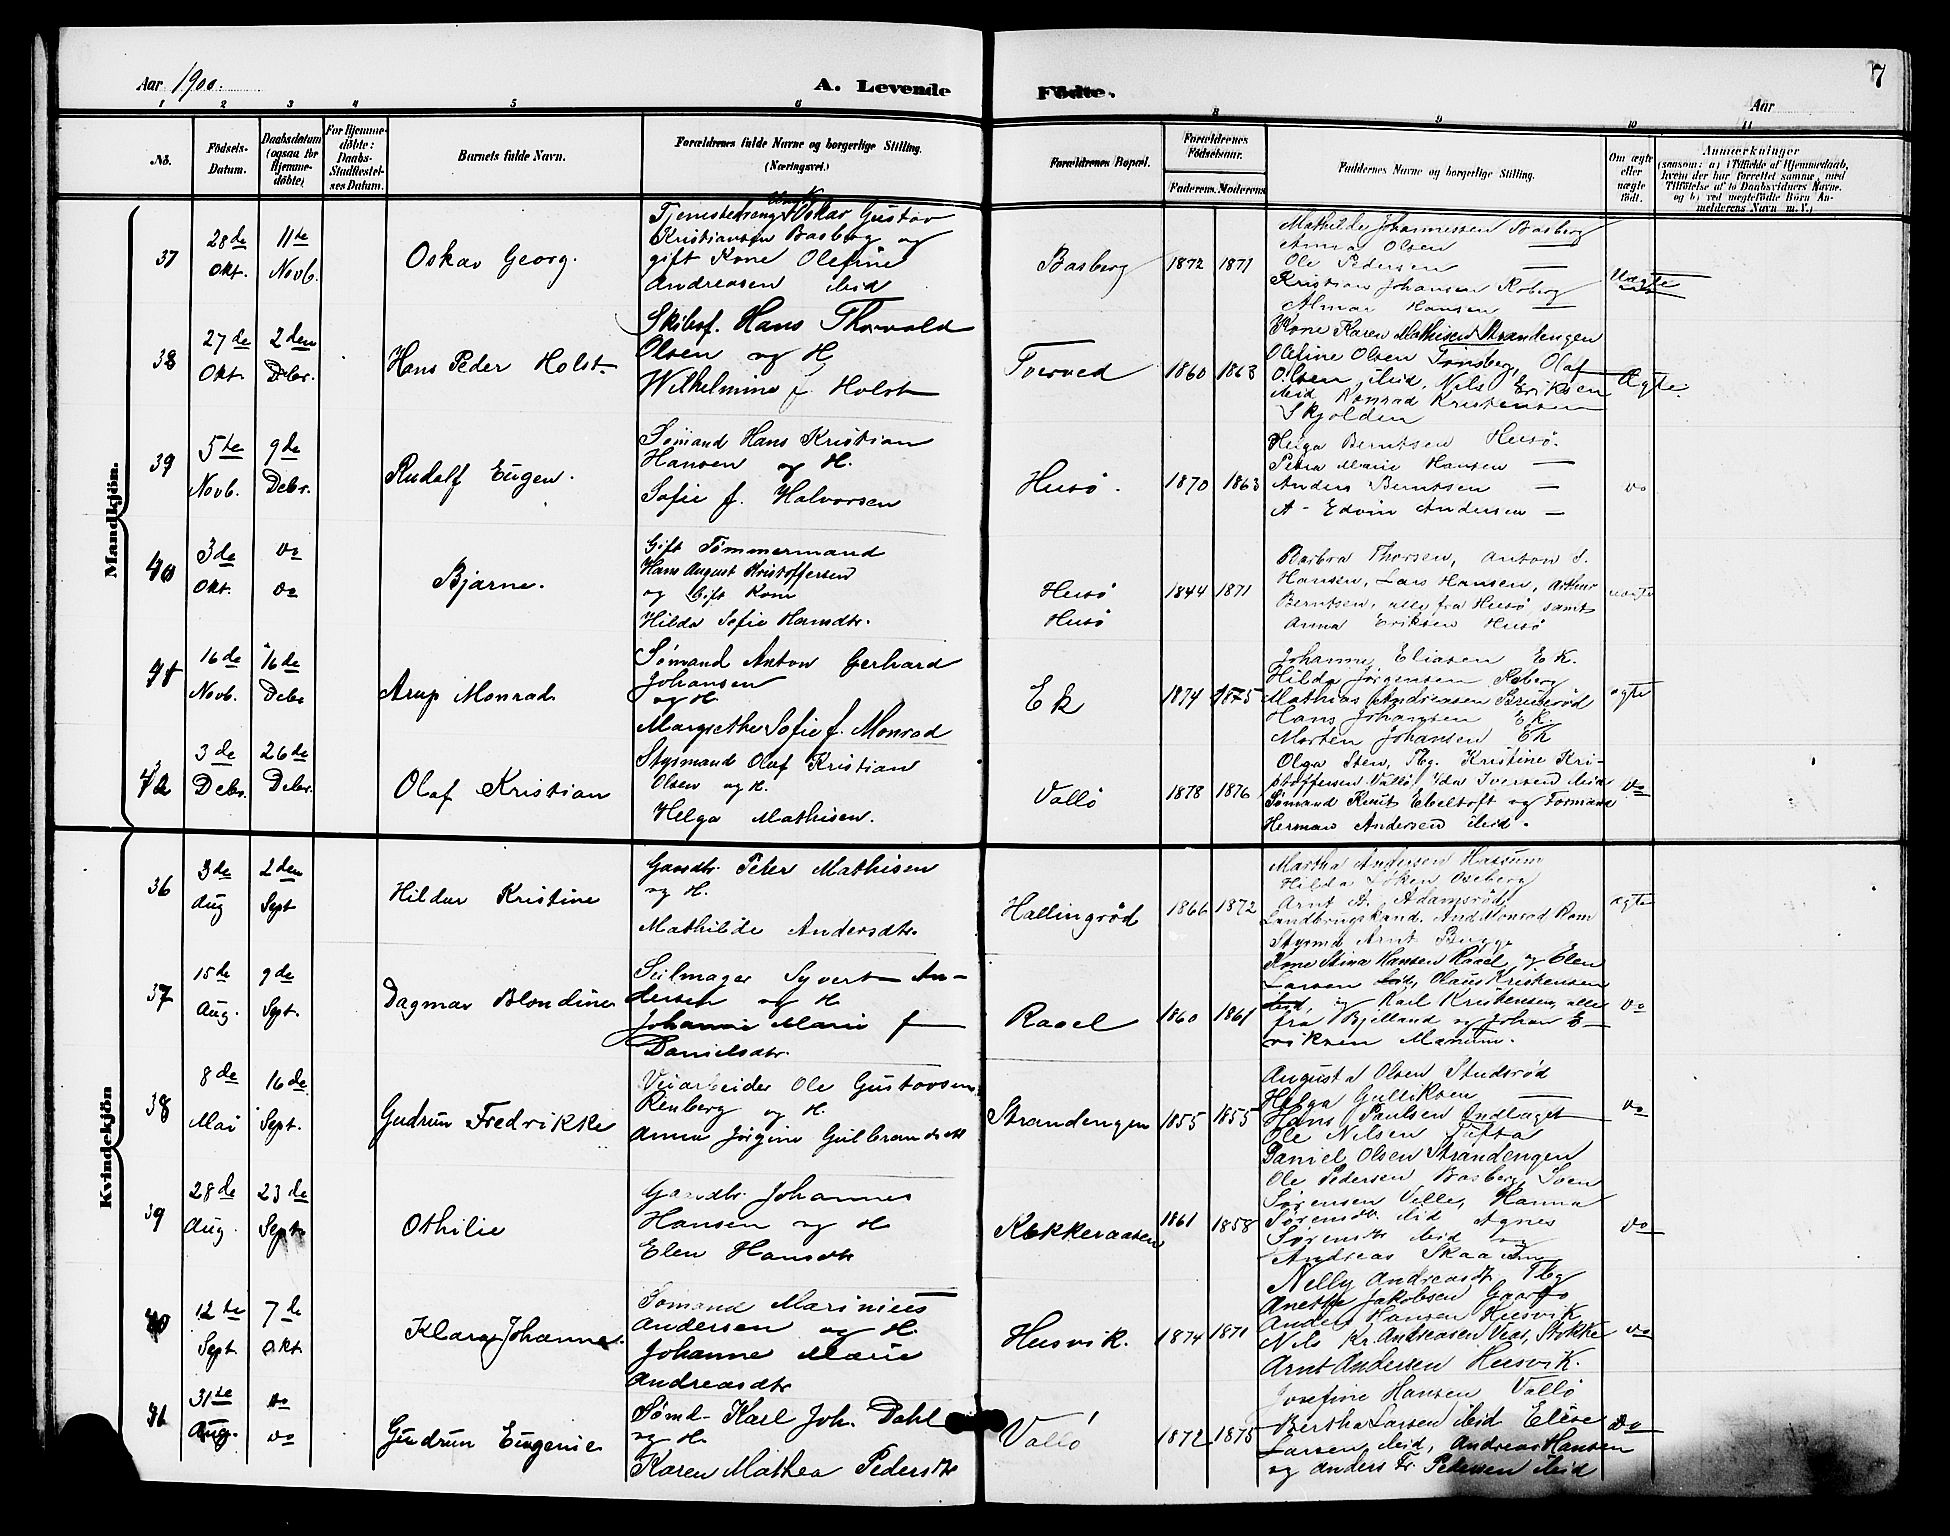 Aar 1900.
A. Levende Födte.
Aar
7
1 2 3 4 5 6 8 9 10 11
No.
Födsels-Datum.
Daabsdatum (ogsaa for Hjemme-döbte)
For Hjemme-döbte: Daabs-Stadfæstel-ses Datum.
Barnets fulde Navn.
Forældrenes fulde Navne og borgerlige Stilling. (Næringsvei.)
Forældrenes Bopæl.
Forældrenes Födselsaar.
Faderens. Moderens.
Faddernes Navne og borgerlige Stilling.
Om ægte eller uægte født.
Anmærkninger
(saasom: a) i Tilfælde af Hjemmedaab,
hvem der har forrettet samme, med
Tilföielse af to Daabsvidners Navne.
og b) ved uægtefödte Börn An-
melderens Navn m. V.)
Mandkjön.
37
28de Okt.
11te Novb.
Oskar Georg.
Tjenestedreng Oskar Gustav
Kristiansen Basberg og
gift Kone Olefine
Andreasen ibid
Basberg
1872 1871
Mathilde Johannessen Basberg
Anna Olsen —
Ole Pedersen —
Kristian Johansen Roberg
Almar Hansen —
Uægte
38
27de Okt.
2den Debr.
Hans Peder Holst
Skibsf. Hans Thorvald
Olsen og H
Wilhelmine f. Holst
Tverved
1860 1863
Kone Karen Mathisen Strandengen
Olefine Olsen Tönsberg, Olaf
Olsen, ibid, Nils Eriksen
ibid Konrad Kristensen
Skjolden
Ægte.
39
5te Novb.
9de Debr.
Rudolf Eugen.
Sømand Hans Kristian
Hansen og H.
Sofie f. Halvorsen
Husö.
1870 1863
Helga Berntsen Husö.
Petra Marie Hansen —
Anders Berntsen —
A- Edvin Andersen —
do
40
3de Okt.
do do
Bjarne.
Gift Tømmermand
Hans August Kristoffersen
og Gift Kone
Hilda Sofie Hansdtr.
Husö
Husö
1844 1871
Barbra Thorsen, Anton S.
Hansen, Lars Hansen, Arthur
Berntsen, alle fra Husö, samt
Anna Eriksen Husö
uægte
41
16de Novb.
16de Debr
Arup Monrad
Sømand Anton Gerhard
Johansen
og H.
Margrethe Sofie f. Monrad
Ek
1874 1875
Johanne Eliasen Ek.
Hilda Jørgensen Roberg
Mathias Andreasen Bruserød
Hans Johansen Ek.
Morten Johansen Ek
ægte
42
3de Debr.
26de Debr.
Olaf Kristian
Styrmand Olaf Kristian
Olsen og H.
Helga Mathisen.
Vallö
1878 1876
Olga Sten, Tbg. Kristine Kri-
stoffersen Vallö, Ida Iversen ibid
Sømand Knut Ebeltoft og Formand
Herman Andersen ibid.
do
Kvindekjön
36
3de Aug
2den Sept
Hildur Kristine
Gaardbr. Peter Mathisen
og H.
Mathilde Andersdtr.
Hallingrød
1866 1872
Martha Andersen Hassum
Hilda Løken Oseberg
Arnt A. Adamsrød
Landbrugskand. And. Monrad Rom
Styrmd Arnt Bugge
ægte
37
15de Aug.
9de Sept.
Dagmar Blondine
Seilmager Syvert An-
dersen og H
Johanne Marie f
Danielsdtr.
Raael
1860 1861
Kone Stina Hansen Raael, og Elen
Larsen ibid, Olaus Kristensen
ibid, og Karl Kristensen, alle
fra Bjelland og Johan E-
riksen Manum.
do
38
8de Mai
16de Sept.
Gudrun Fredrikke
Veiarbeider Ole Gustavsen
Renberg og H.
Anna Jørgine Gulbrandsdtr
Strandengen
1855 1855
Augusta Olsen Studsrød
Helga Gulliksen —
Hans Paulsen Indlaget
Ole Nilsen Tufta
Daniel Olsen Strandengen
do
39
28de Aug.
23de Sept
Othilie
Gaardbr. Johannes
Hansen og H
Elen Hansdtr
Kokkeraasen
1861 1858
Ole Pedersen Basberg, Sven
Sørensen Velle, Hanna
Sørensdtr. ibid Agnes
Sørensdtr ibid og
Andreas Skaaum
do
40
12te Sept.
7de Okt
Klara Johanne.
Sømand Marinius
Andersen og H.
Johanne Marie
Andreasdtr
Husvik.
1874 1871
Nelly Andreasdtr. Tbg
Anette Jakobsen Gaarbo
Anders Hansen Husvik
Nils Kr. Andreasen Veas, Stokke
Arnt Andersen Husvik.
do
41
31te Aug.
do do
Gudrun Eugenie
Sømd. Karl Joh. Dahl
og H.
Karen Mathea Pedersdtr
Vallö
1872 1875
Josefine Hansen Vallö
Bertha Larsen ibid Elise
Larsen, ibid, Andreas Hansen
og Anders Fr. Pedersen ibid
do